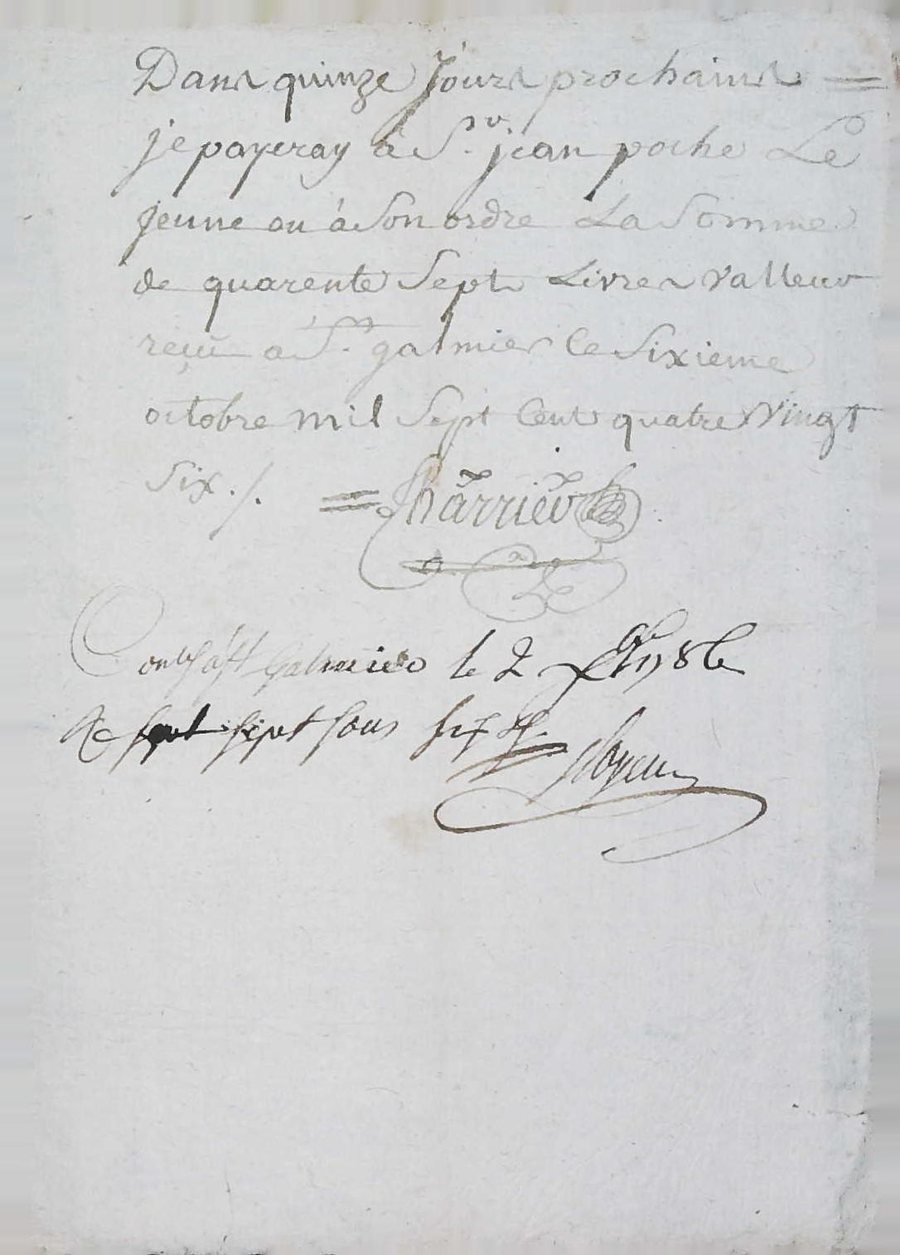 Dans quinze Jours prochains =
je payeray à Sr. jean poche Le
jeune ou à Son ordre La Somme
de quarente Sept Livres Valleur
reçu a St. galmier le Sixieme
octobre mil Sept Cent quatre Vingt
Six ./. = Charrier
Conlé à St galmier le 2 1786
sept sous six